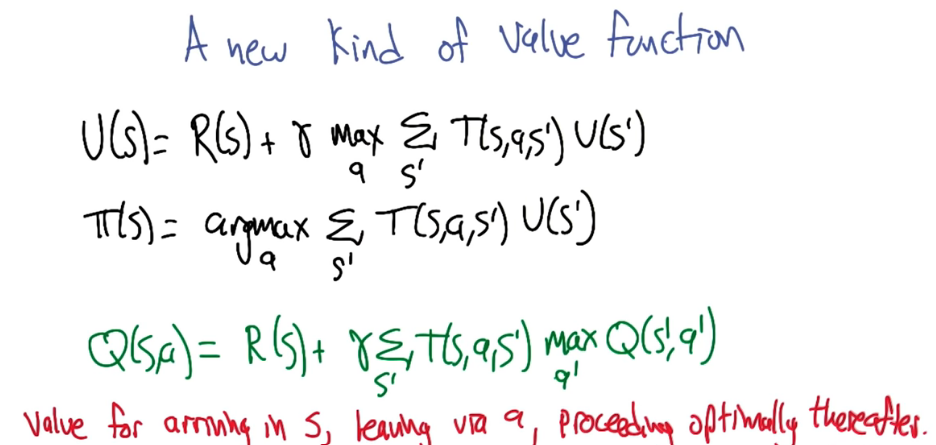 A new kind of value function
U(s) = R(s) + γ max_a Σ_s' T(s,a,s') U(s')
π(s) = argmax_a Σ_s' T(s,a,s') U(s')
Q(s,a) = R(s) + γ Σ_s' T(s,a,s') max_a' Q(s',a')
Value for arriving in s, leaving via a, proceeding optimally thereafter.